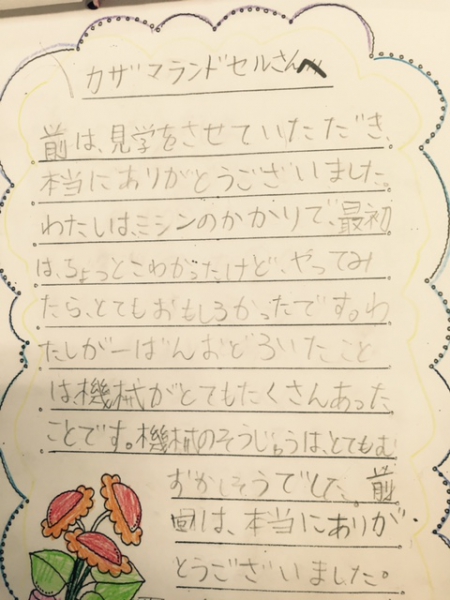 カザマランドセルさんへ
前は、見学をさせていただき、
本当にありがとうございました。
わたしは、ミシンのかかりで、最初
は、ちょっとこわかったけど、やってみ
たら、とてもおもしろかったです。わ
たしが一ばんおどろいたこと
は、機械がとてもたくさんあった
ことです。機械のそうじゅうは、とてもむ
ずかしそうでした。前
回は、本当にありが
とうございました。